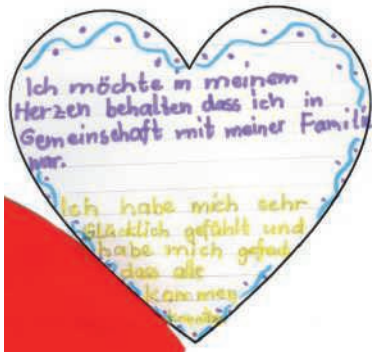 Ich möchte in meinem
Herzen behalten dass ich in
Gemeinschaft mit meiner Famili
war.
Ich habe mich sehr
Glücklich gefühlt und
habe mich gefreut
dass alle
kommen
konnten